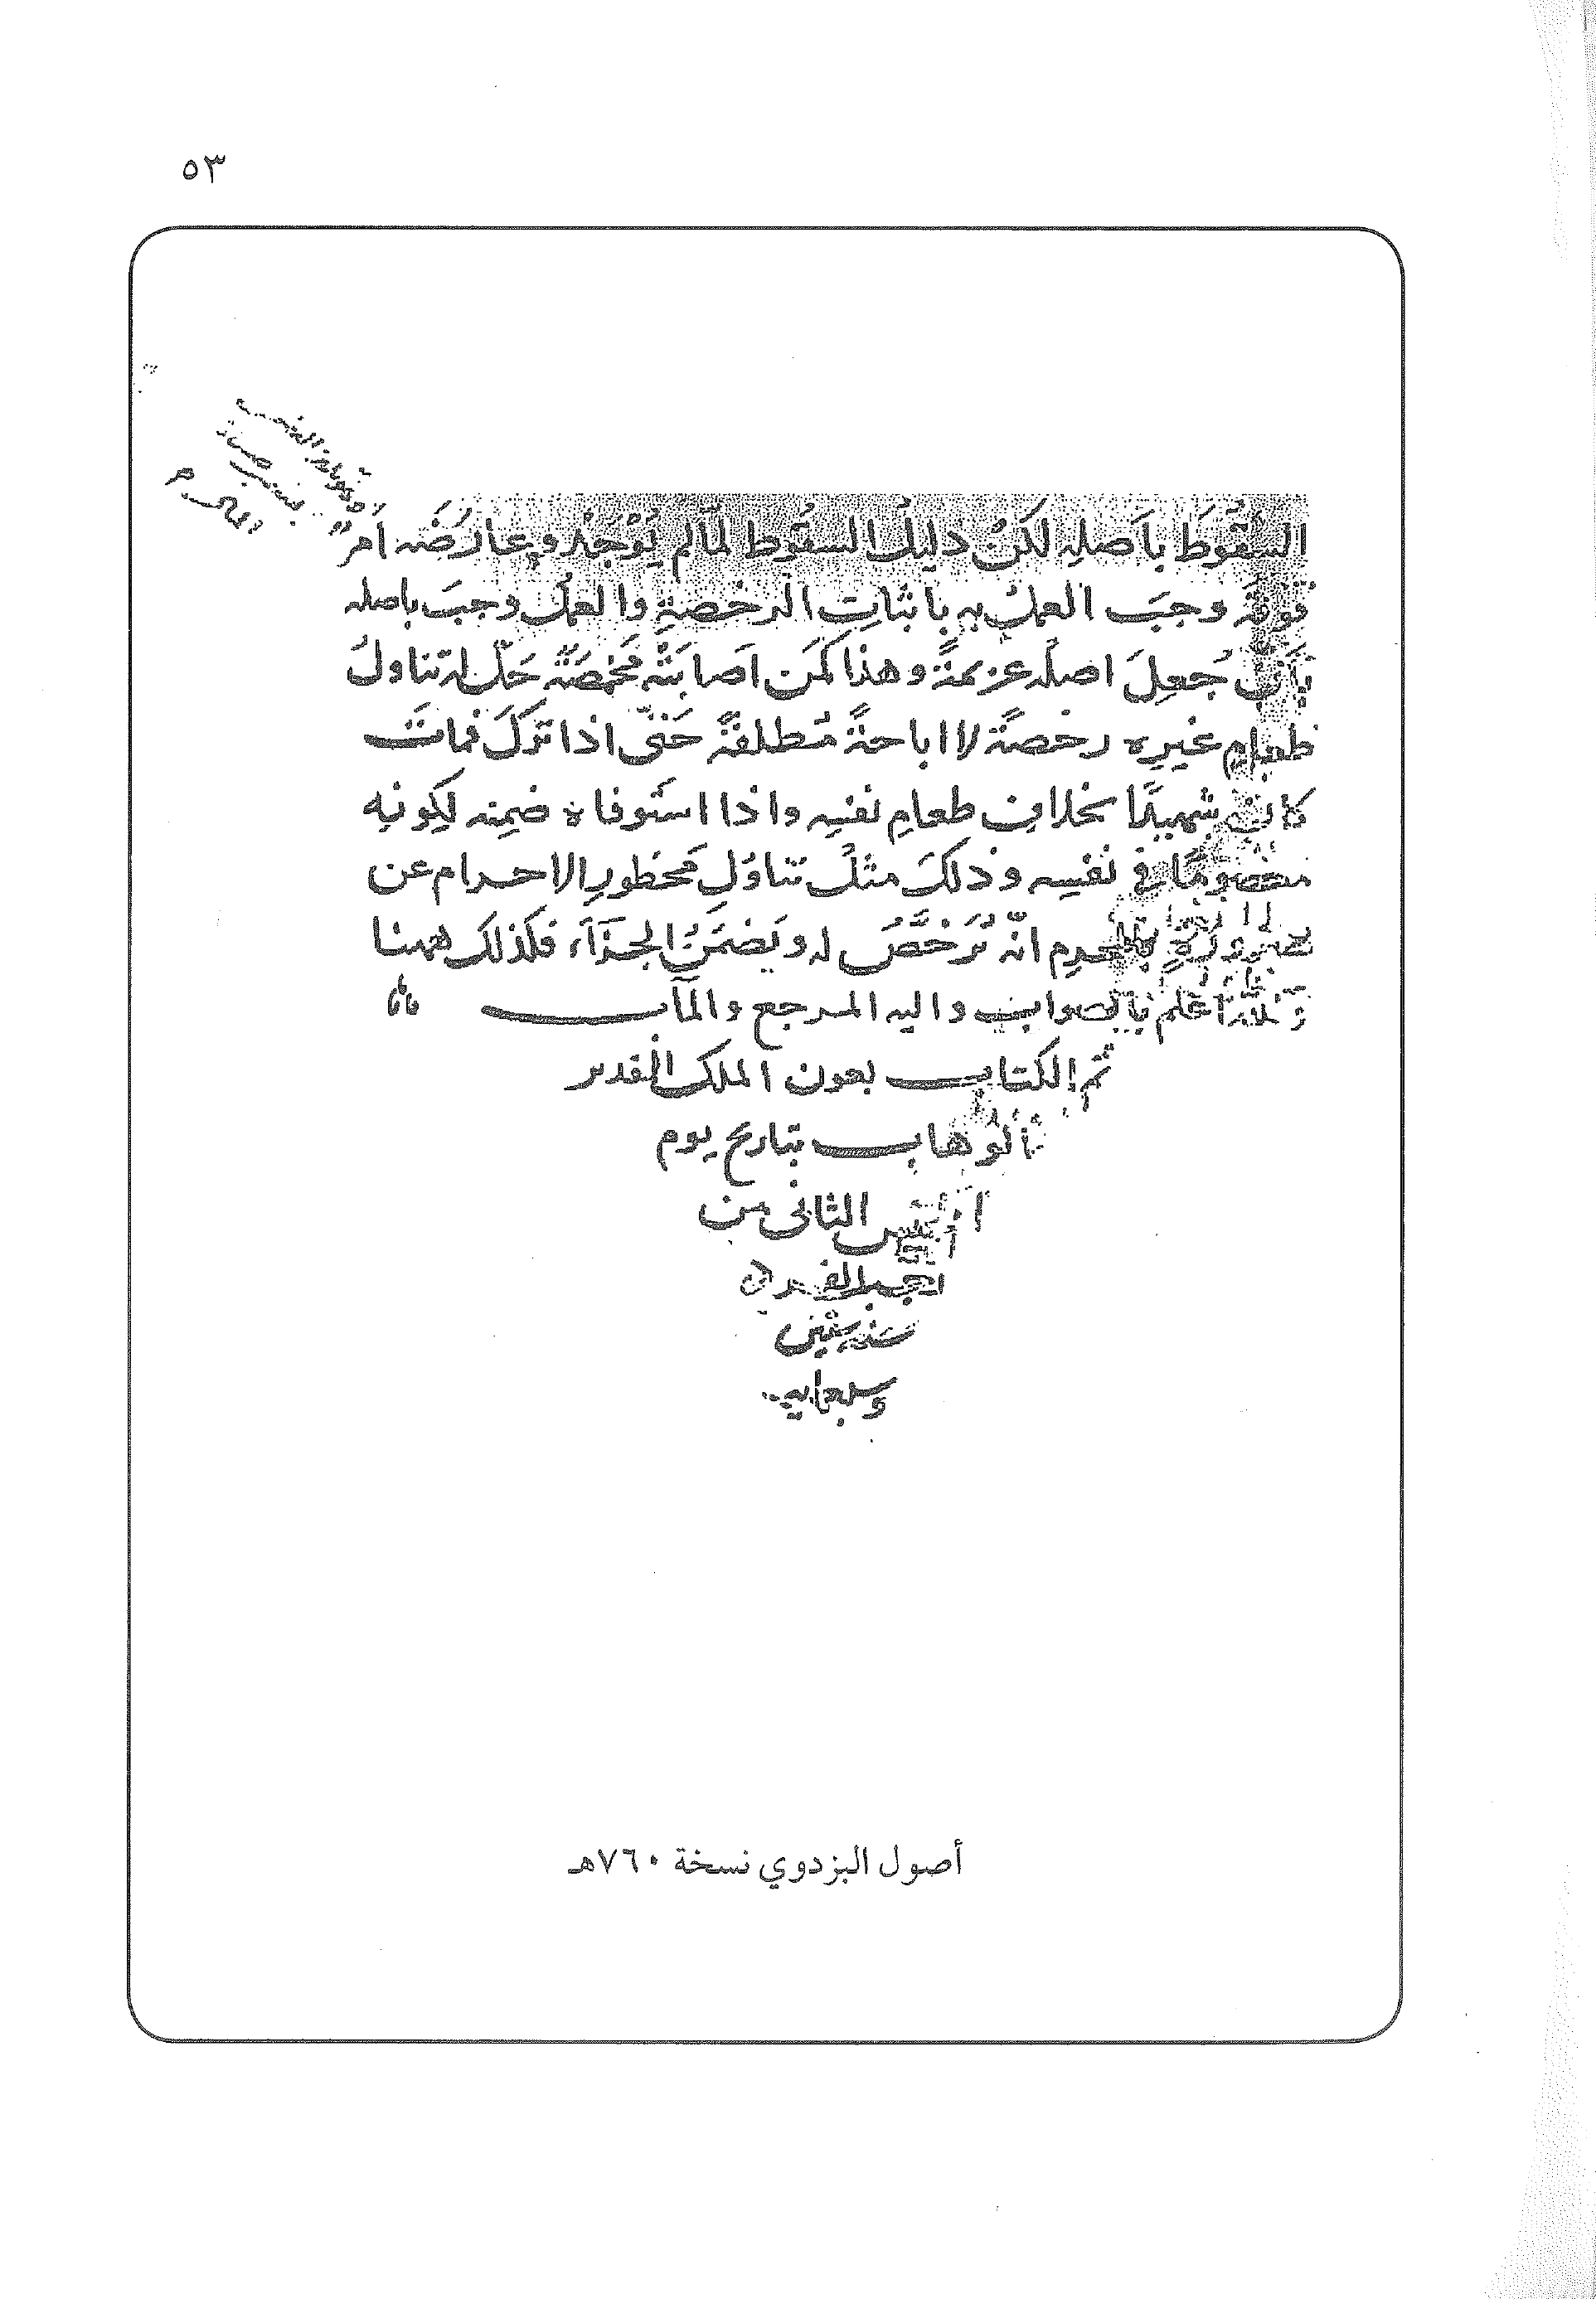 ٥٣
السقُوطَ بأَصلِهِ لكنْ دليلُ السقُوط لمَّا لم يُوْجَدْ وعارَضَه اَمرٌ
فوقَه وجبَ العملُ به باثباتِ الرخصةِ والعملُ وجبَ باصله
بأَن جُعِلَ اصلُه عزيمةً وهذا كمَن اَصابَتْه مَخْمَصَةٌ حَلَّ له تناولُ
طعامِ غيرِه رخصةً لا اباحةً مُطلقةً حَتّى اذا تَرَكَ فماتَ
كان شهيدًا بخلافِ طعامِ نفسِه واذا استَوفاه ضمِنه لِكونِه
معصُومًا في نفسِه وذلكَ مثلُ تناوُلِ مَحظورِ الاحرام عن
ضرورةٍ بالمحرِم انّه يُرَخَّصُ له ويَضمَنُ الجزآءَ فكذلك ههنا
والله اَعلم بالصواب واليه المرجع والمآب
تم الكتاب بعون الملك القدير
الوهاب بتاريخ يوم
الخميس الثانى من
رجب الفرد
سنه ستين
وسبعمايه
أصول البزدوي نسخة ٧٦٠هـ